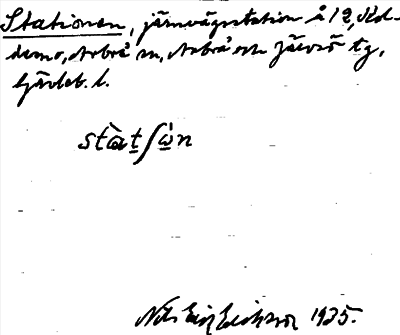 Stationen, järnvägsstation å 12, Sld-
demo, Arbrå sn, Arbrå och Järvsö tg,
Gävleb. l.
statʃωn
Nils Eric Eriksson 1935.